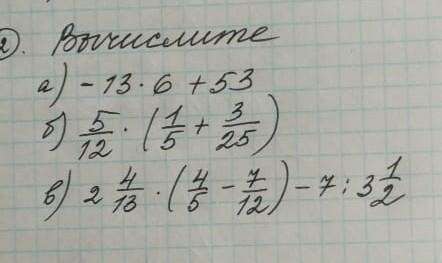 2. Вычислите
а) - 13 · 6 + 53
б) 5/12 · (1/5 + 3/25)
в) 2 4/13 · (4/5 - 7/12) - 7 : 3 1/2